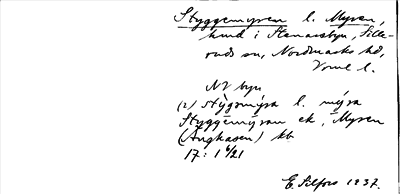 Styggemyren l. Myren,
hmd i Stenarsbyn, Sille-
ruds sn, Nordmarks hd,
Vrml l.
NV byn
(2) stýgәmỳra l. mỳra
Styggemyran ek., Myren
(Ängkasen) kb
17:1 4/21
E. Silfors 1937.